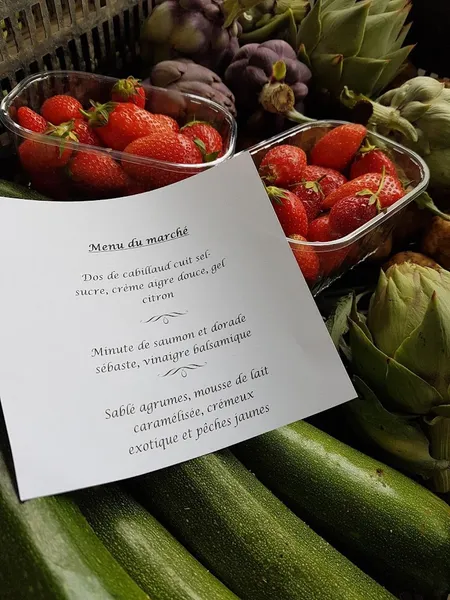 Menu du marché
Dos de cabillaud cuit sel-
sucre, crème aigre douce, gel
citron
Minute de saumon et dorade
sébaste, vinaigre balsamique
Sablé agrumes, mousse de lait
caramélisée, crémeux
exotique et pêches jaunes